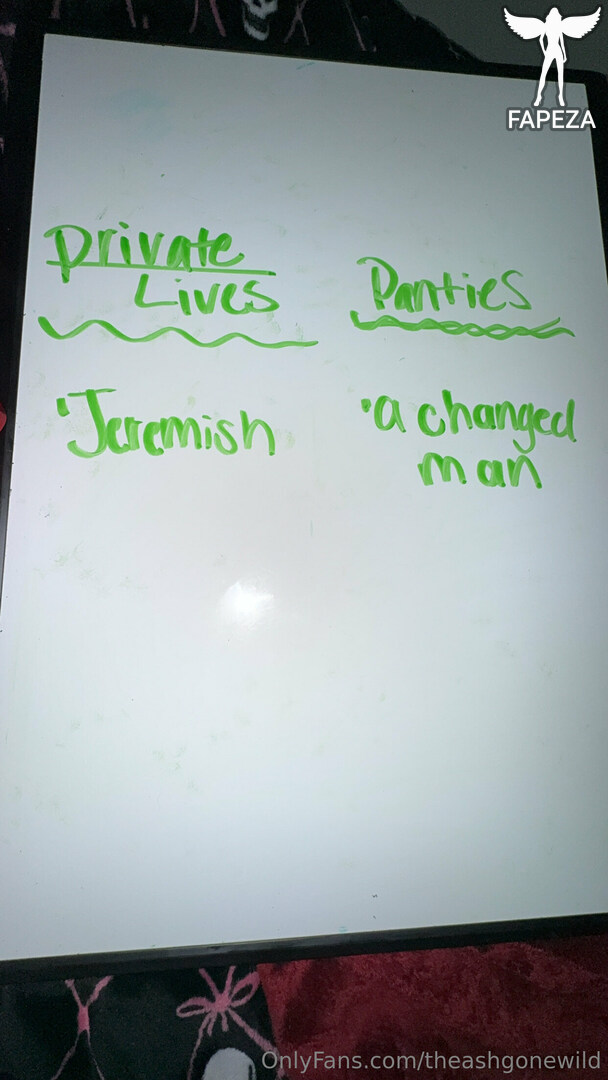 FAPEZA
Private
Lives
Panties
'Jeremish
'a changed
man
OnlyFans.com/theashgonewild